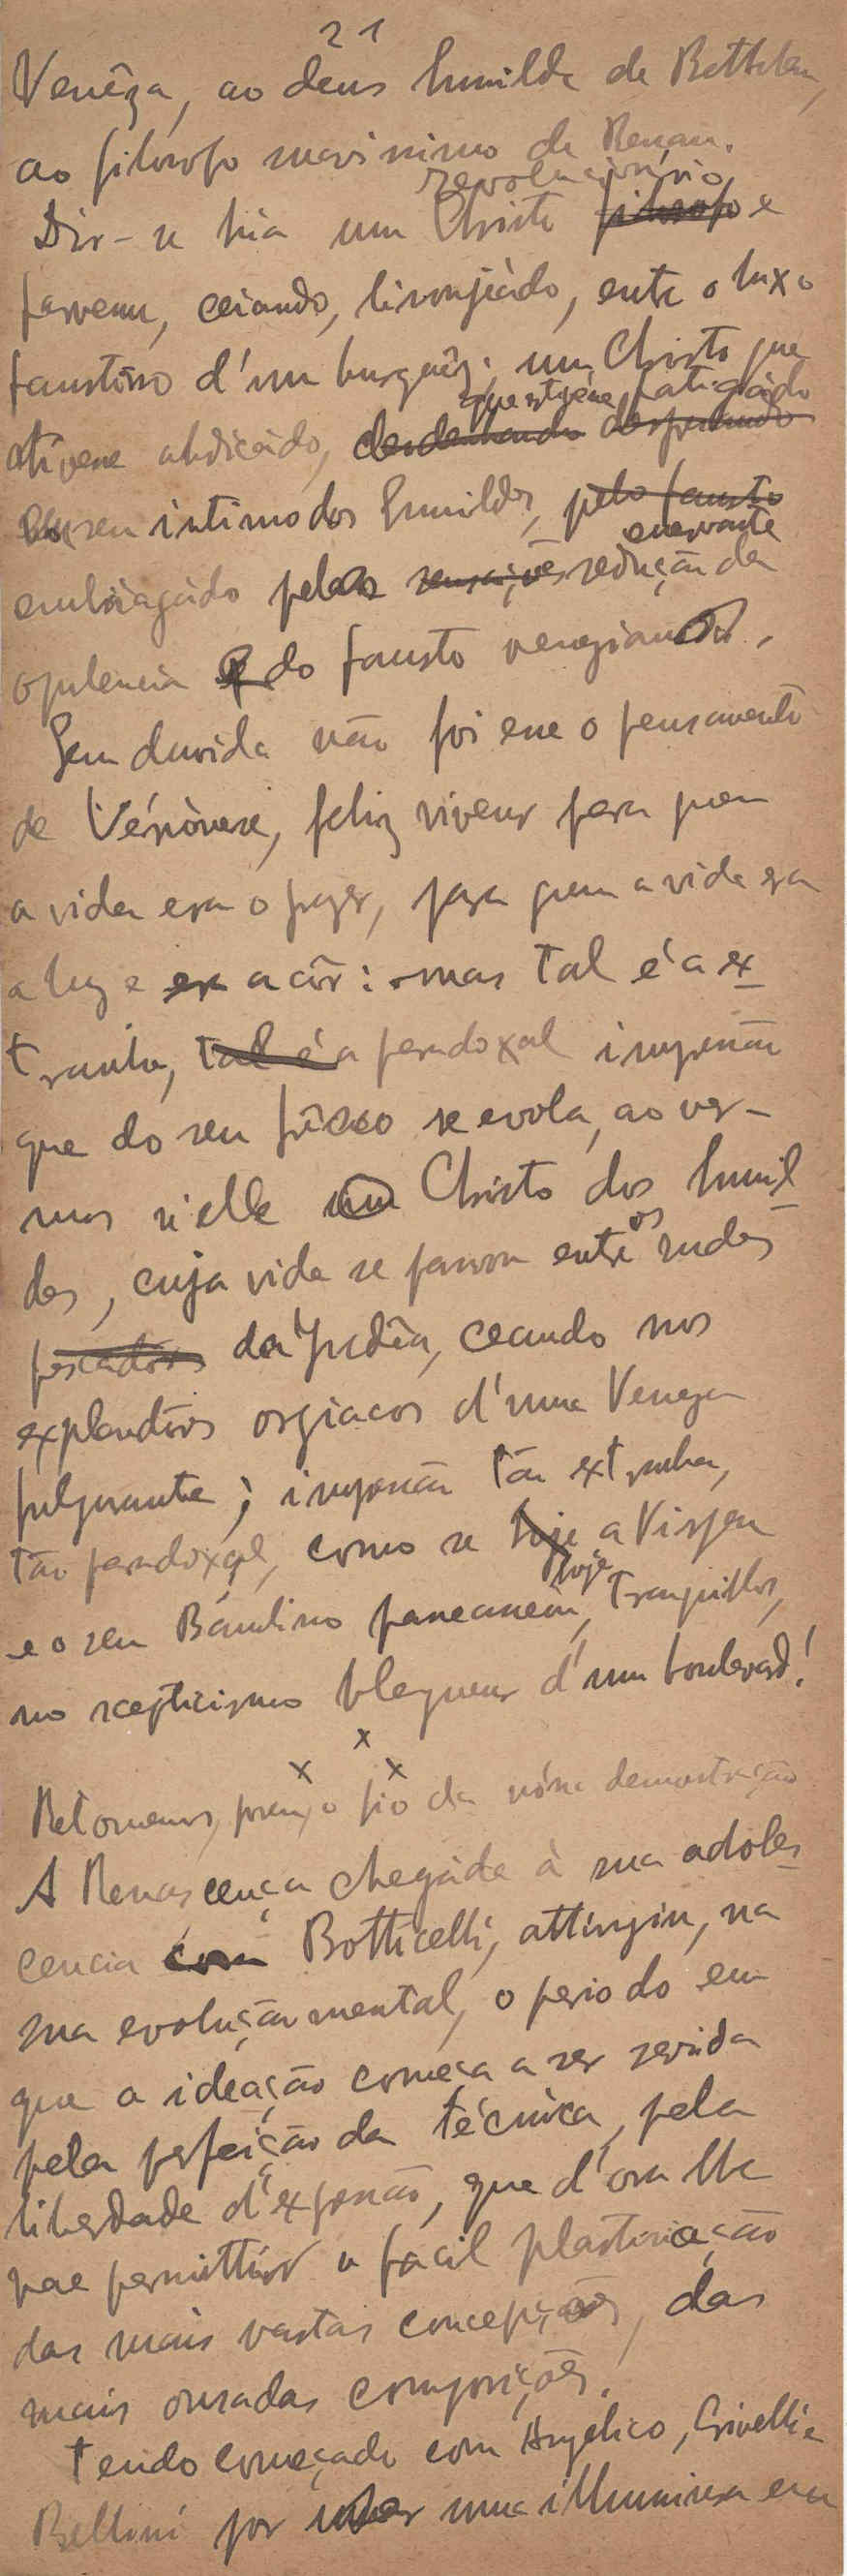 21
Venêza, ao deus humilde de Bethlem,
ao filósofo ma
de Renan.
revolucionário
Dir-se hia um Christo filosofo e
parvenu, ceiando, lisonjeádo, entre o luxo
faustôso d'um burguêz: um Christo que
que estgéne fatigádo
otívene abdicádo, desdenhando desprezando
seu intimo dos humildes, pelo fausto
enervante
embriagádo pela sensações sedução da
opulencia e do fausto veneziano.
Sem duvida não foi esse o pensamento
de Véronese, feliz viveur para quem
a vida era o prazer, para quem a vida era
a luz e era a côr: mas tal é a ex
tranha, tal é a paradoxal impressão
que do seu frêsco se evola, ao ver-
mos n'elle um Christo dos humil
des, cuja vida se passou entre os rudes
pescadôres da Judêa, ceando nos
explendôres orgiacos d'uma Veneza
fulgurante; impressão tão extranha,
tão paradoxal, como se hoje a Virgem
hoje
e o seu Bambino passeassem, tranquillos,
no scepticismo blagueur d'um boulevard!
x x x
Retomemos, porem, o fio da nóssa demonstração
A Renascença chegáda à sua adoles
cencia com Botticelli, attingiu, na
sua evolução mental, o periodo em
que a ideação começa a ser servida
pela perfeição da técnica, pela
liberdade d'expressão, que d'ora lhe
vae permittir a facil plasticisação
das mais vastas concepções, das
mais ousadas composições.
Tendo começado com Angelico, Crivelli e
Bellini por
uma illuminura em